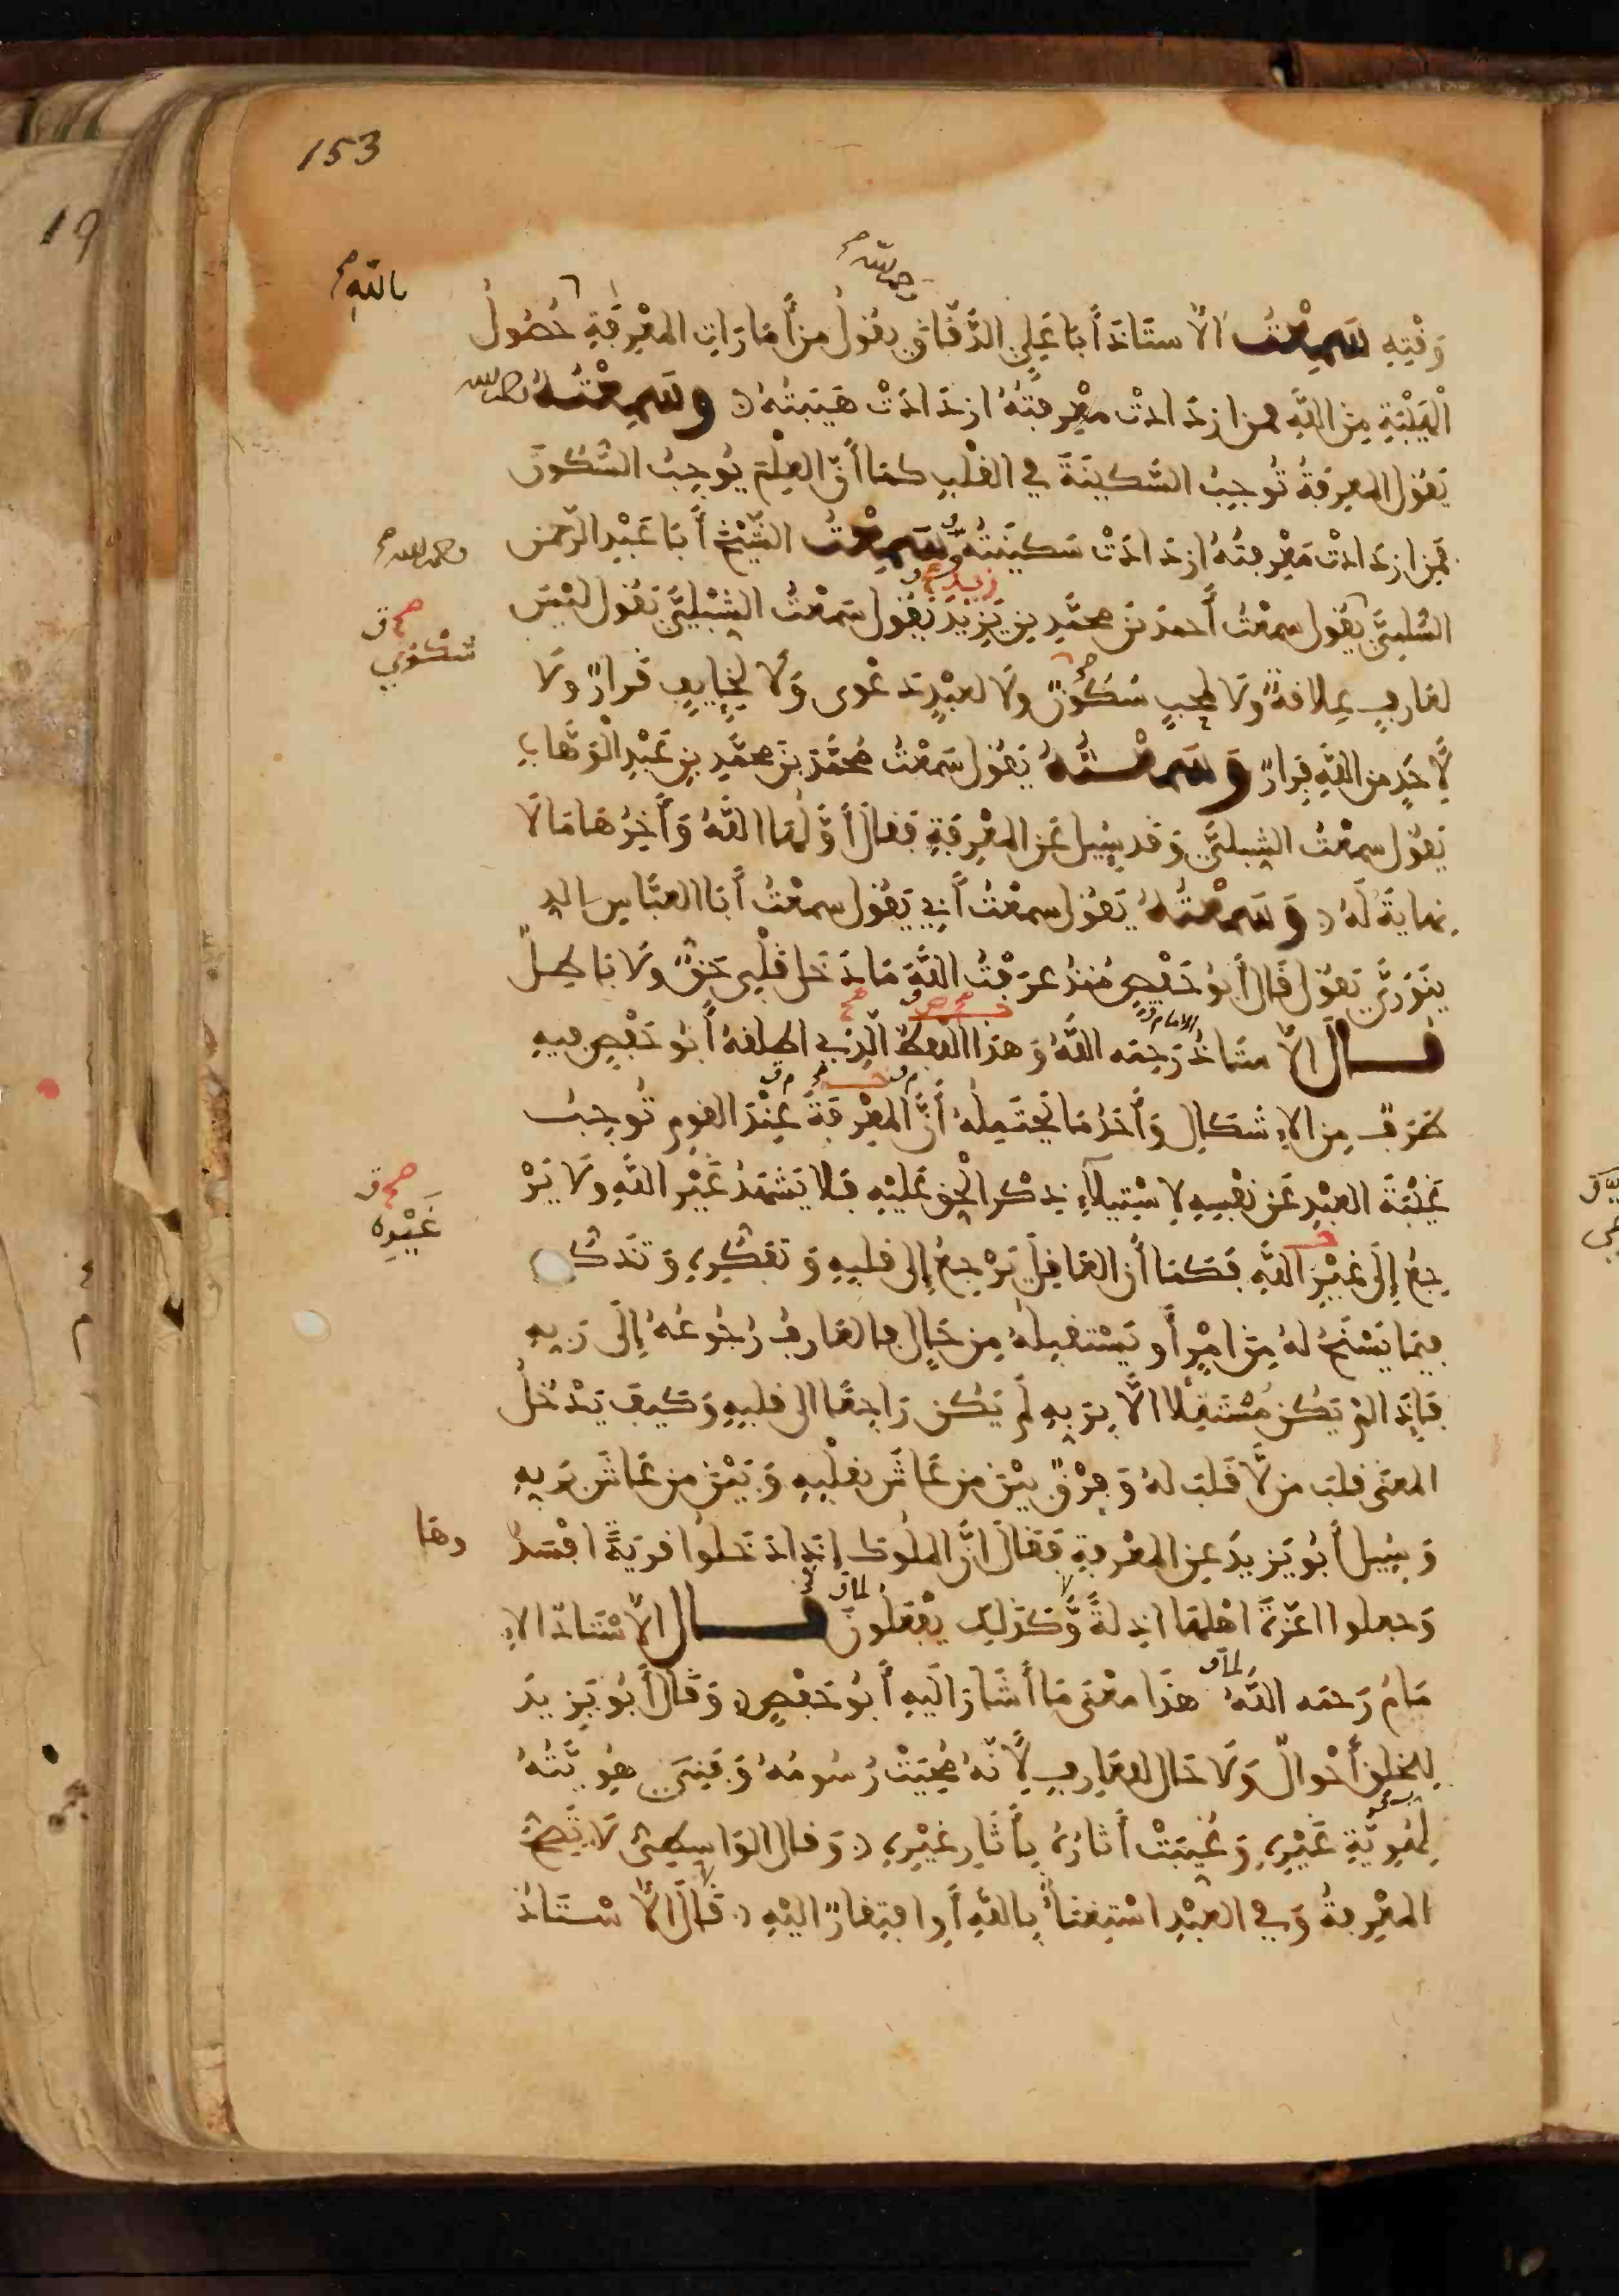 153
19
بالله صح
رحمه الله صح
وَقْتِهِ سَمِعْتُ الأستَاذَ أَبَا عَلِيٍّ الدَّقَّاقَ يقُولُ مِنْ أَمَارَاتِ المَعْرِفَةِ حُصُولُ
الْهَيْبَةِ مِنَ اللَّهِ فمن ازدَادتْ معْرِفتُهُ ازدَادَتْ هَيبَتُهُ وسَمِعْتُهُ رحمه الله
يَقُول المعرِفَةُ تُوجِبُ السَّكِينَةَ في القلْبِ كمَا أَنَّ العِلْمَ يُوجِبُ السُّكُونَ
فمَنِ ازدَادتْ مَعْرِفتُهُ ازدَادَتْ سَكينَتُهُ وسَمِعْتُ الشَّيْخَ أَبَا عَبْدِ الرَّحمن
رحمه الله صح
زيد
السُّلَمِيَّ يَقُول سمعْتُ أَحمدَ بْنَ محمَّدِ بنِ يَزِيْدَ يَقُول سَمعْتُ الشِّبْلِيَّ يَقُول لَيْسَ
شكوي
لعَارِفٍ عِلاقةٌ وَلَا لمحبٍّ سُكُونٌ ولَا لعَبْدٍ دَعْوى وَلَا لخَايِفٍ قَرارٌ ولَا
لِأَحَدٍ من اللَّهِ فِرارٌ وَسَمعْتُهُ يَقُول سَمعْتُ مُحمَّدَ بنَ محمَّدِ بنِ عَبْدِ الْوَهَّابِ
يَقُول سمعْتُ الشبلِيَّ وَقد سُئِيلَ عَن المعْرِفَةِ فقالَ أَوَّلُهَا اللَّهُ وَآخِرُهَا مَا لَا
نِهايَةَ لَهُ وَسَمعْتُهُ يَقُول سمعْتُ أَبِي يَقُول سمعْتُ أَبَا العَبَّاسِ الدِ
ينَوَرِيَّ يَقُول قَالَ أَبُو حَفْصٍ مُنذُ عرَفْتُ اللَّهَ مَا دَخَل قلْبِي حَقٌّ ولَا بَاطِلٌ
الامام
قَالَ الأستَاذُ رَحِمَه اللَّهُ وَهذا اللفظ الَّذِي اطلقهُ أَبُو حَفْصٍ فيهِ
طَرَفٌ مِن الإِشكَالِ وَأَحَدُ مَا يَحْتَمِلُهُ أَنَّ المَعْرِفَةَ عِنْدَ القوم تُوجِبُ
غَيْبَةَ العَبْدِ عَن نَفْسِهِ لِاسْتِيلَاءِ ذِكْرِ الْحقِ عَليْهِ فلا يَشْهَدُ غَيْرَ اللَّهِ ولَا يَرْ
غَيْره
جِعُ إِلَى غيْرِ اللَّهِ فكمَا أَن العَاقِلَ يَرْجِعُ إِلى قلبِهِ وَتفكُّرِهِ وَتَذكُّ
فيمَا يَسْنَحُ لهُ مِن امْرٍ أَو يَسْتقبلُهُ مِن حَالٍ فالعَارِفُ رُجُوعُهُ إِلَى رَبِهِ
فَإِذَا لمْ يَكُن مُشْتَغِلا الَّا بِرَبِهِ لَمْ يَكُن رَاجِعًا الى قلبِهِ وَكَيفَ يَدْخُلُ
المعْنَى قلبَ من لَّا قَلبَ لهُ وَفرْقٌ بيْنَ من عَاشَ بقلْبِهِ وَبَيْنَ من عَاشَ بِرَبِهِ
وَسُئِيلَ أَبُو يَزِيدَ عِن المعْرِفةِ فَقَالَ انَّ المُلُوكَ إِذَا دَخَلُوا قريَةً افْسَدُ
وهَا
وَجعلُوا اعَزَّةَ اهْلِهَا اذلَّةً وَكَذَلِكَ يفْعَلُونَ قَالَ الأُسْتَاذُ الاِ
مَامُ رَحمَه اللَّهُ هذَا معْنَى مَا أَشَارَ الَيهِ أَبُو حَفْصٍ وَقَالَ أَبُو يَزِيدَ
لِلْخلْقِ أَحْوالٌ وَلَا حَالَ لِلعَارِفِ لِأَنَّهُ مُحِيَتْ رُسُومُهُ وَفَنِيَتْ هُوِيَّتُهُ
لِهُوِيَّةِ غَيْرِهِ وَغُيِّبَتْ آثَارُهُ بِآثَارِ غيْرِهِ وَقال الوَاسِطِيُّ لَا تَصِحُّ
المعْرِفةُ وَفي العَبْدِ اسْتِغنَاءٌ بِاللَّهِ أَوِ افتِقارٌ اليْهِ قَالَ الأُسْتَاذُ